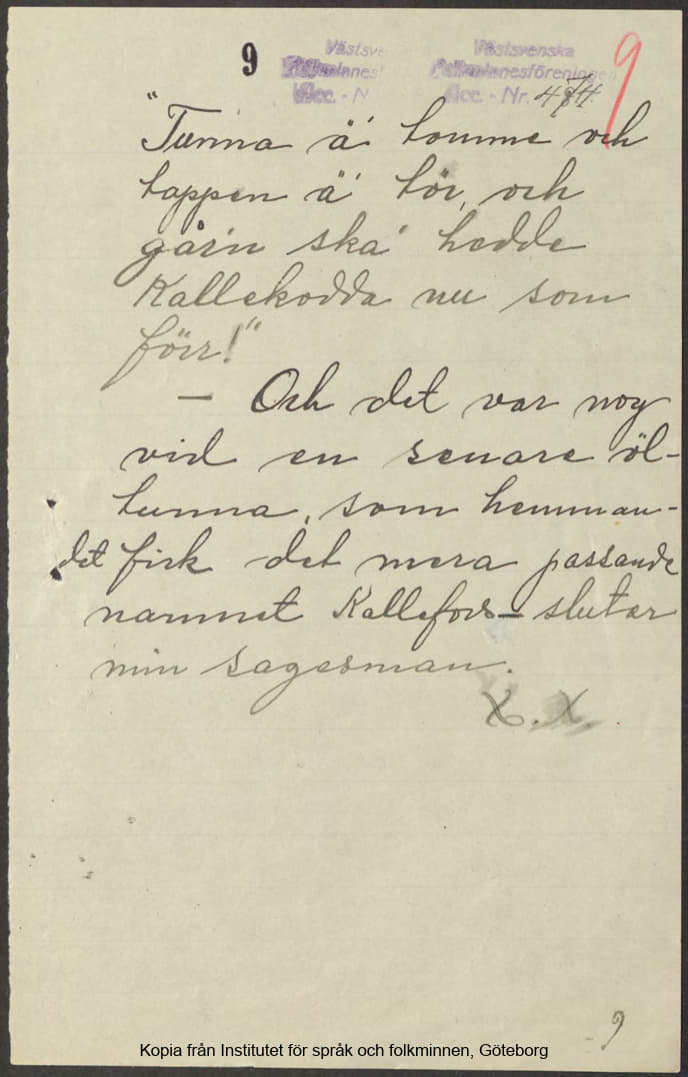 9
Västsvenska
Folkminnesföreningen
Acc. - Nr.
9
"Tunna ä' tomme och
tappen ä' tör, och
går'n ska' hedde
Kallekodda nu som
förr!"
— Och det var nog
vid en senare öl-
tunna, som hemman-
det fick det mera passande
namnet Kallefors — slutar
min sagesman.
X. X.
9
Kopia från Institutet för språk och folkminnen, Göteborg